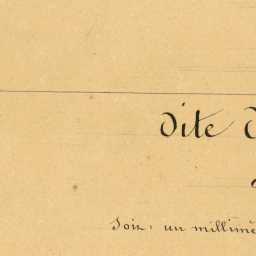 Dite
Soit : un millimè